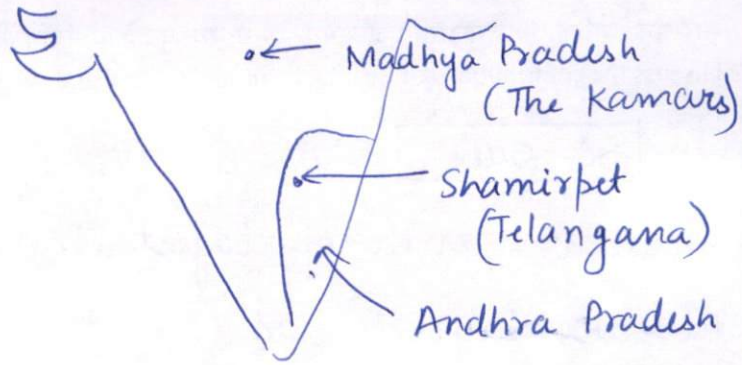 Madhya Pradesh
(The Kamars)
Shamirpet
(Telangana)
Andhra Pradesh